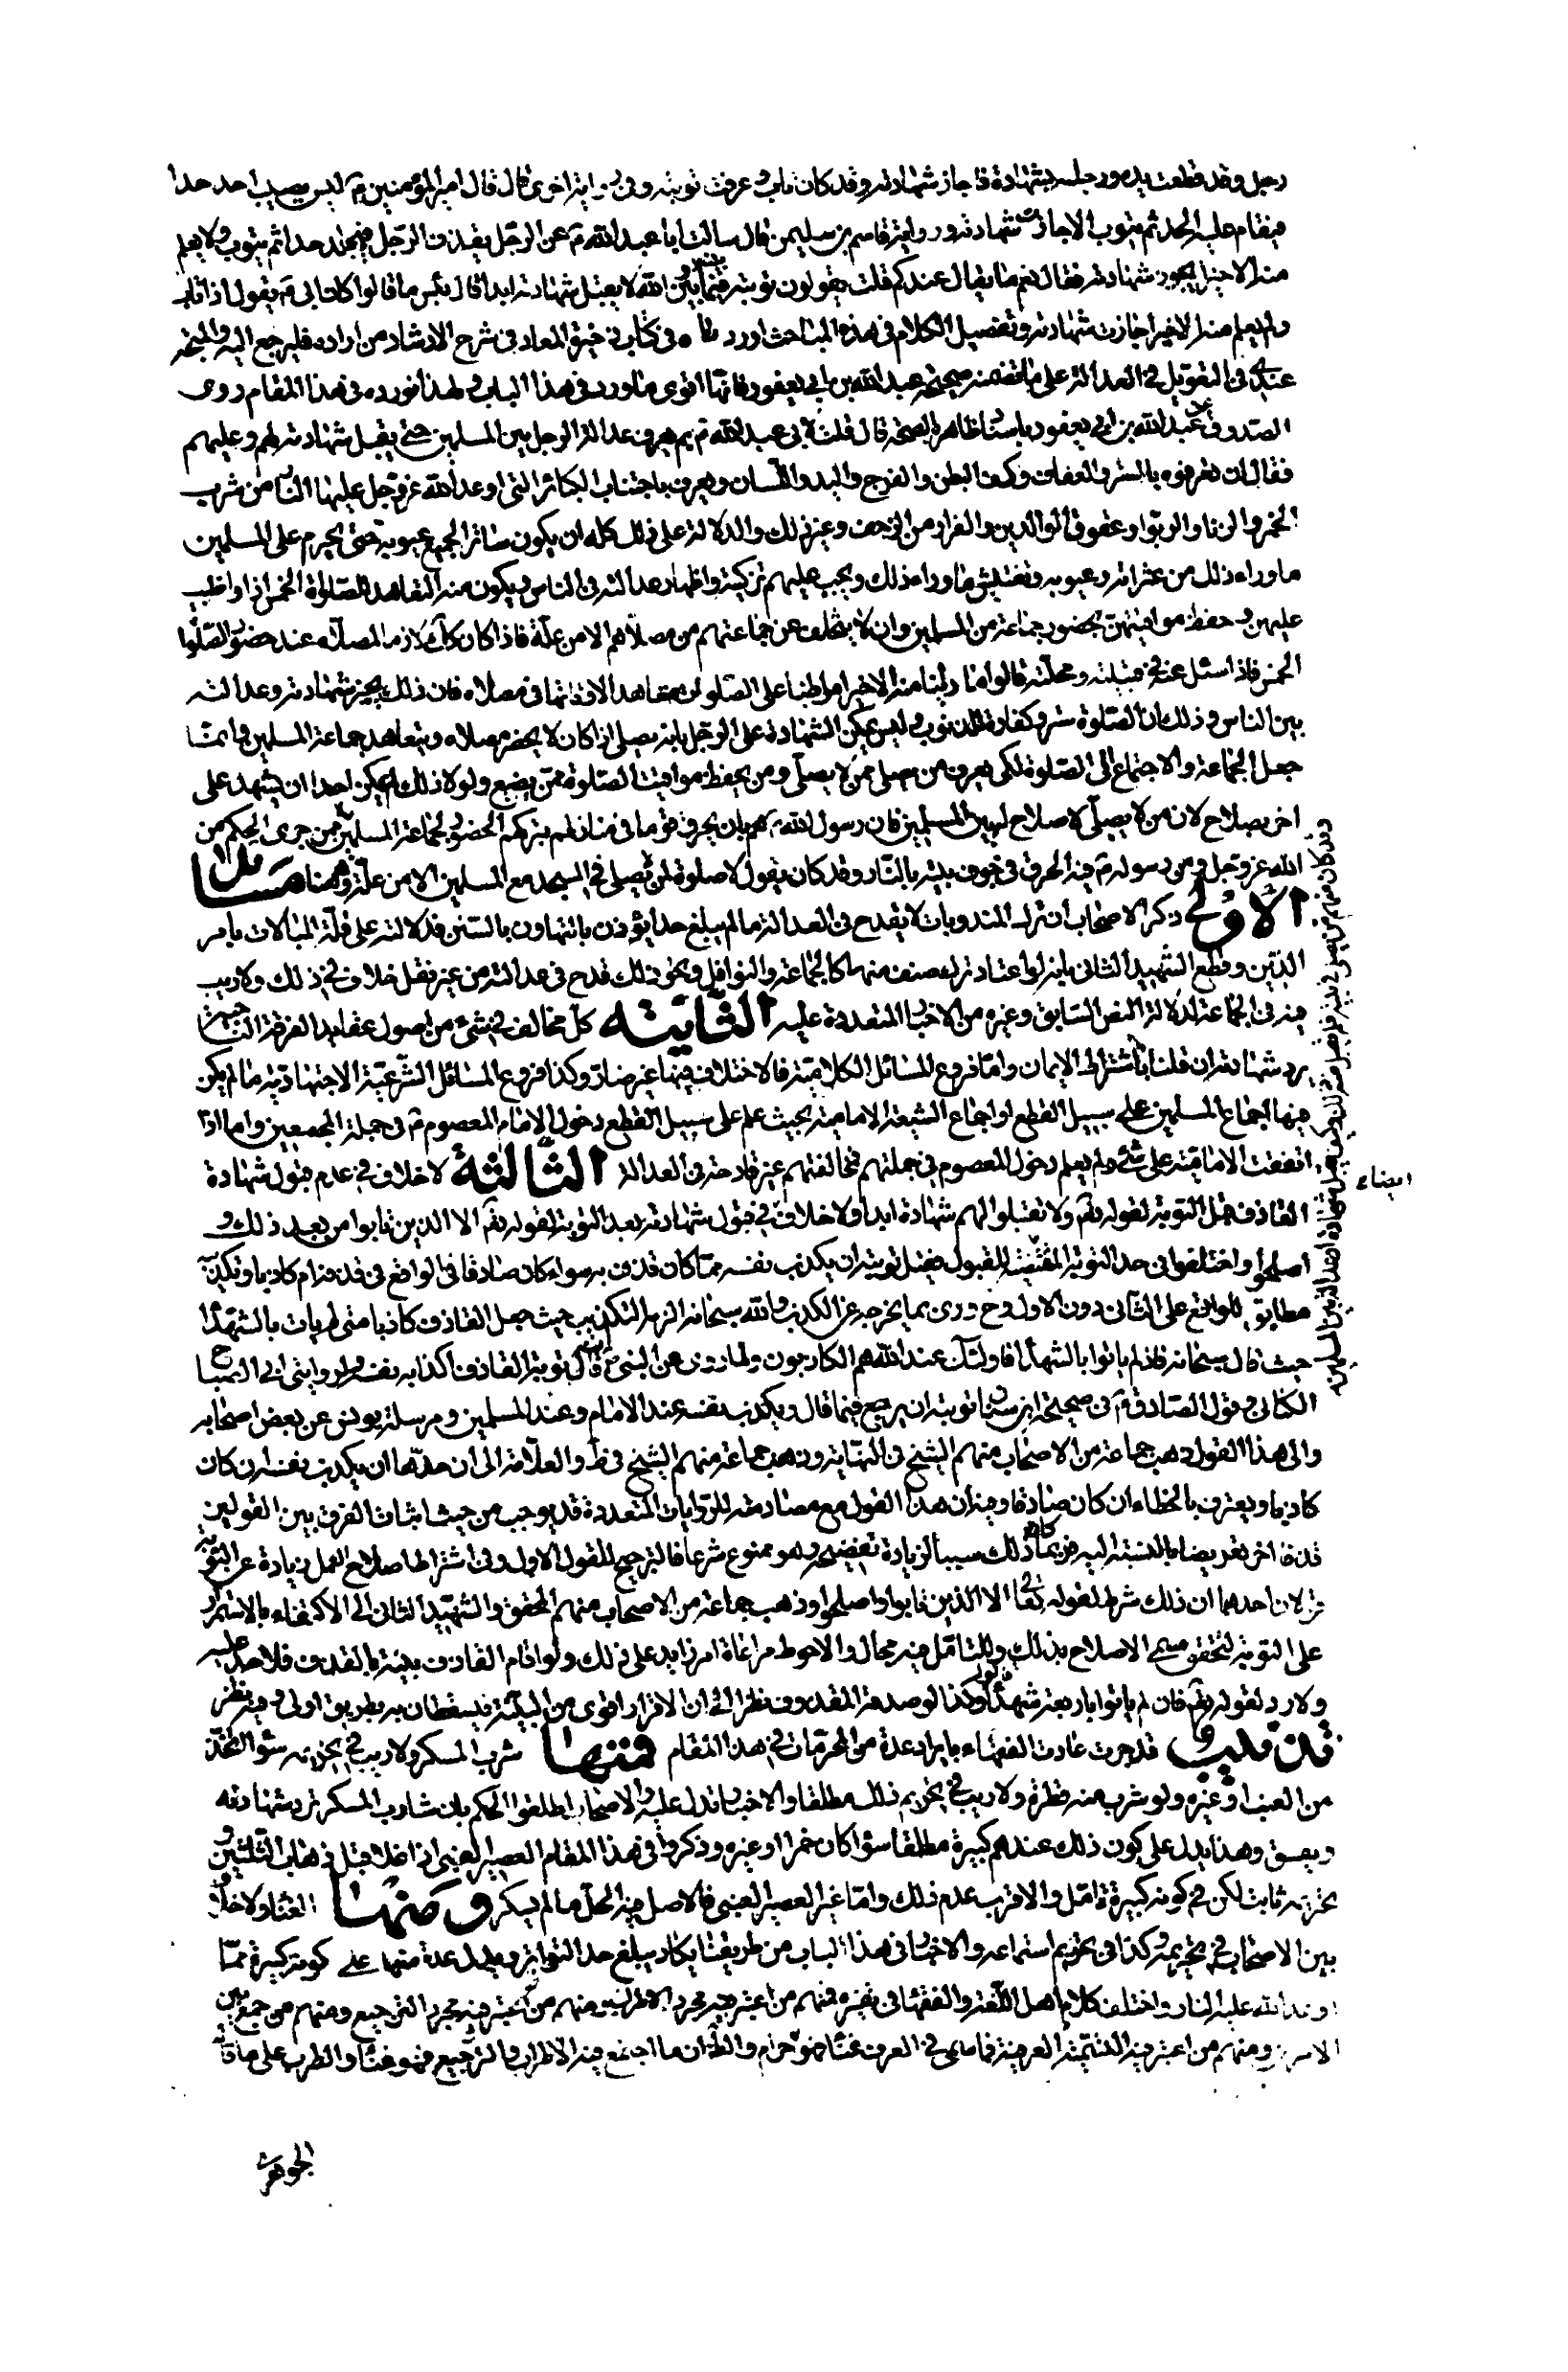 رجل وقد قطعت يده ورجله بشهادة فاجاز شهادته وقد كان تاب وعرفت توبته وفى رواية اخرى قال قال امير المؤمنين ع ليس يصيب احد حدا
فيقام عليه الحد ثم يتوب الا جازت شهادته ورواية قاسم بن سليمن قال سالت ابا عبد الله ع عن الرجل يقذف الرجل فيجلد حدا ثم يتوب ولا يعلم
منه الا خيرا يجوز شهادته فقال نعم ما يقال عندكم قلت يقولون توبته فيما بينه وبين الله لا يقبل شهادته ابدا قال بئس ما قالوا كان ابى ع يقول اذا تاب
ولم يعلم منه الا خيرا جازت شهادته وتفصيل الكلام فى هذه المباحث اوردناه فى كتاب ذخيرة المعاد فى شرح الارشاد من اراده فليرجع اليه والمتجه
عندى التعويل فى العدالة على ما تضمنته صحيحة عبد الله بن ابى يعفور فانها اقوى ما ورد فى هذا الباب ولهذا نورده فى هذا المقام روى
الصدوق عن عبد الله بن ابى يعفور باسناد ظاهره الصحة قال قلت لابى عبد الله ع بم يعرف عدالة الرجل بين المسلمين حتى يقبل شهادته لهم وعليهم
فقال ان تعرفوه بالستر والعفاف وكف البطن والفرج واليد واللسان ويعرف باجتناب الكبائر التى اوعد الله عز وجل عليها النار من شرب
الخمر والزنا والربوا وعقوق الوالدين والفرار من الزحف وغير ذلك والدلالة على ذلك كله ان يكون ساترا لجميع عيوبه حتى يحرم على المسلمين
ما وراء ذلك من عثراته وعيوبه وتفتيش ما وراء ذلك ويجب عليهم تزكيته واظهار عدالته فى الناس ويكون منه التعاهد للصلوة الخمس اذا واظب
عليهن وحفظ مواقيتهن بحضور جماعة من المسلمين وان لا يتخلف عن جماعتهم من مصلاهم الا من علة فاذا كان كك لازما لمصلاه عند حضور الصلوات
الخمس فاذا سئل عنه فى قبيلته ومحلته قالوا ما راينا منه الا خيرا مواظبا على الصلوات متعاهدا لاوقاتها فى مصلاه فان ذلك يجيز شهادته وعدالته
بين الناس وذلك ان الصلوة ستر وكفارة للذنوب وليس يمكن الشهادة على الرجل بانه يصلى اذا كان لا يحضر مصلاه ويتعاهد جماعة المسلمين وانما
جعل الجماعة والاجتماع الى الصلوة لكى يعرف من يصلى ممن لا يصلى ومن يحفظ مواقيت الصلوة ممن يضيع ولولا ذلك لم يمكن احدا ان يشهد على
اخر بصلاح لان من لا يصلى لا صلاح له بين المسلمين فان رسول الله ص هم بان يحرق قوما فى منازلهم بتركهم الحضور لجماعة المسلمين
الله عز وجل ومن رسوله ص فيه الحرق فى جوف بيته بالنار وقد كان يقول لا صلوة لمن لا يصلى فى المسجد مع المسلمين الا من علة وههنا مسائل
الاولى ذكر الاصحاب ان ترك المندوبات لا يقدح فى العدالة ما لم يبلغ حدا يؤذن بالتهاون بالسنن فدلالته على قلة المبالات بامر
الدين وقطع الشهيد الثانى بانه لو اعتاد ترك صنف منها كالجماعة والنوافل ونحو ذلك قدح فى عدالته من غير نقل خلاف فى ذلك ولا ريب
فيه فى الجماعة لدلالة النص السابق وغيره من الاخبار المتعددة عليه الثانية كل مخالف فى شىء من اصول عقايد الفرقة الناجية
يرد شهادته ان قلنا باشتراط الايمان واما فروع المسائل الكلامية فالاختلاف فيها غير ضار وكذا فروع المسائل الشرعية الاجتهادية ما لم يكن
فيها اجماع المسلمين على سبيل القطع او اجماع الشيعة الامامية بحيث علم على سبيل القطع دخول الامام المعصوم ع فى جملة المجمعين واما اذا
اتفقت الامامية على شىء ولم يعلم دخول المعصوم فى جملتهم فمخالفتهم غير قادحة فى العدالة الثالثة لا خلاف فى عدم قبول شهادة
القاذف قبل التوبة لقوله تعم ولا تقبلوا لهم شهادة ابدا ولا خلاف فى قبول شهادته بعد التوبة لقوله تعم الا الذين تابوا من بعد ذلك و
اصلحوا واختلفوا فى حد التوبة المقتضية للقبول فقيل توبته ان يكذب نفسه مما كان قذف به سواء كان صادقا فى الواقع فى قذفه ام كاذبا وتكذيبه
مطابق للواقع على الثانى دون الاول وح يورى بما يخرجه عن الكذب والله سبحانه الزمه التكذيب حيث جعل القاذف كاذبا متى لم يات بالشهداء
حيث قال سبحانه فاذ لم ياتوا بالشهداء فاولئك عند الله هم الكاذبون ولما روى عن النبى ص انه قال توبة القاذف اكذابه نفسه ولرواية ابى الصباح
الكنانى وقول الصادق ع فى صحيحة ابن سنان توبته ان يرجع فيما قال ويكذب نفسه عند الامام وعند المسلمين ومرسلة يونس عن بعض اصحابه
والى هذا القول ذهب جماعة من الاصحاب منهم الشيخ فى النهاية وذهب جماعة منهم الشيخ فى ط والعلامة الى ان حدها ان يكذب نفسه ان كان
كاذبا ويعترف بالخطاء ان كان صادقا وفيه ان هذا القول مع مصادمته للروايات المتعددة قد يوجب من حيث اثبات الفرق بين القولين
قذفا اخر تعريضا بالنسبة اليه فربما كان ذلك سببا لزيادة تفضيحه وهو ممنوع شرعا فالترجيح للقول الاول وفى اشتراط اصلاح العمل زيادة عن التوبة
قولان احدهما ان ذلك شرط لقوله تعالى الا الذين تابوا واصلحوا وذهب جماعة من الاصحاب منهم المحقق والشهيد الثانى الى الاكتفاء بالاستمرار
على التوبة لتحقق مسمى الاصلاح بذلك وللتامل فيه مجال والاحوط مراعاة امر زايد على ذلك ولو اقام القاذف بينة بالقذف فلا حد عليه
ولا رد لقوله تعم فان لم ياتوا باربعة شهداء وكذا لو صدقه المقذوف نظرا الى ان الاقرار اقوى من البينة فيسقطان به بطريق اولى وفيه نظر
تذنيب قد جرت عادت الفقهاء بايراد عدة من المحرمات فى هذا المقام فمنها شرب المسكر ولا ريب فى تحريمه سواء اتخذ
من العنب او غيره ولو شرب منه قطرة ولا ريب فى تحريم ذلك مطلقا والاخبار تدل عليه والاصحاب اطلقوا الحكم بان شارب المسكر ترد شهادته
ويفسق وهذا يدل على كون ذلك عندهم كبيرة مطلقا سواء كان خمرا او غيره وذكروا فى هذا المقام العصير العنبى اذا غلا قبل ذهاب الثلثين و
تحريمه ثابت لكن فى كونه كبيرة تامل والاقرب عدم ذلك واما غير العصير العنبى فالاصل فيه الحل ما لم يسكر ومنها الغناء ولا خلاف
بين الاصحاب فى تحريمه وكذا فى تحريم استماعه والاخبار فى هذا الباب من طريقنا يكاد يبلغ حد التواتر ويدل عدة منها على كونه كبيرة مما
اوعد الله عليه النار واختلف كلام اهل اللغة والفقهاء فى تفسيره فمنهم من اعتبر فيه مجرد الاطراب ومنهم من اعتبر فيه مجرد الترجيع ومنهم من جمع بين
الامرين ومنهم من اعتبر فيه التسمية العرفية فما سمى فى العرف غناء فهو حرام والظ ان ما اجتمع فيه الاطراب والترجيع فهو غناء والطرب على ما قاله
الجوهرى
ايضاء